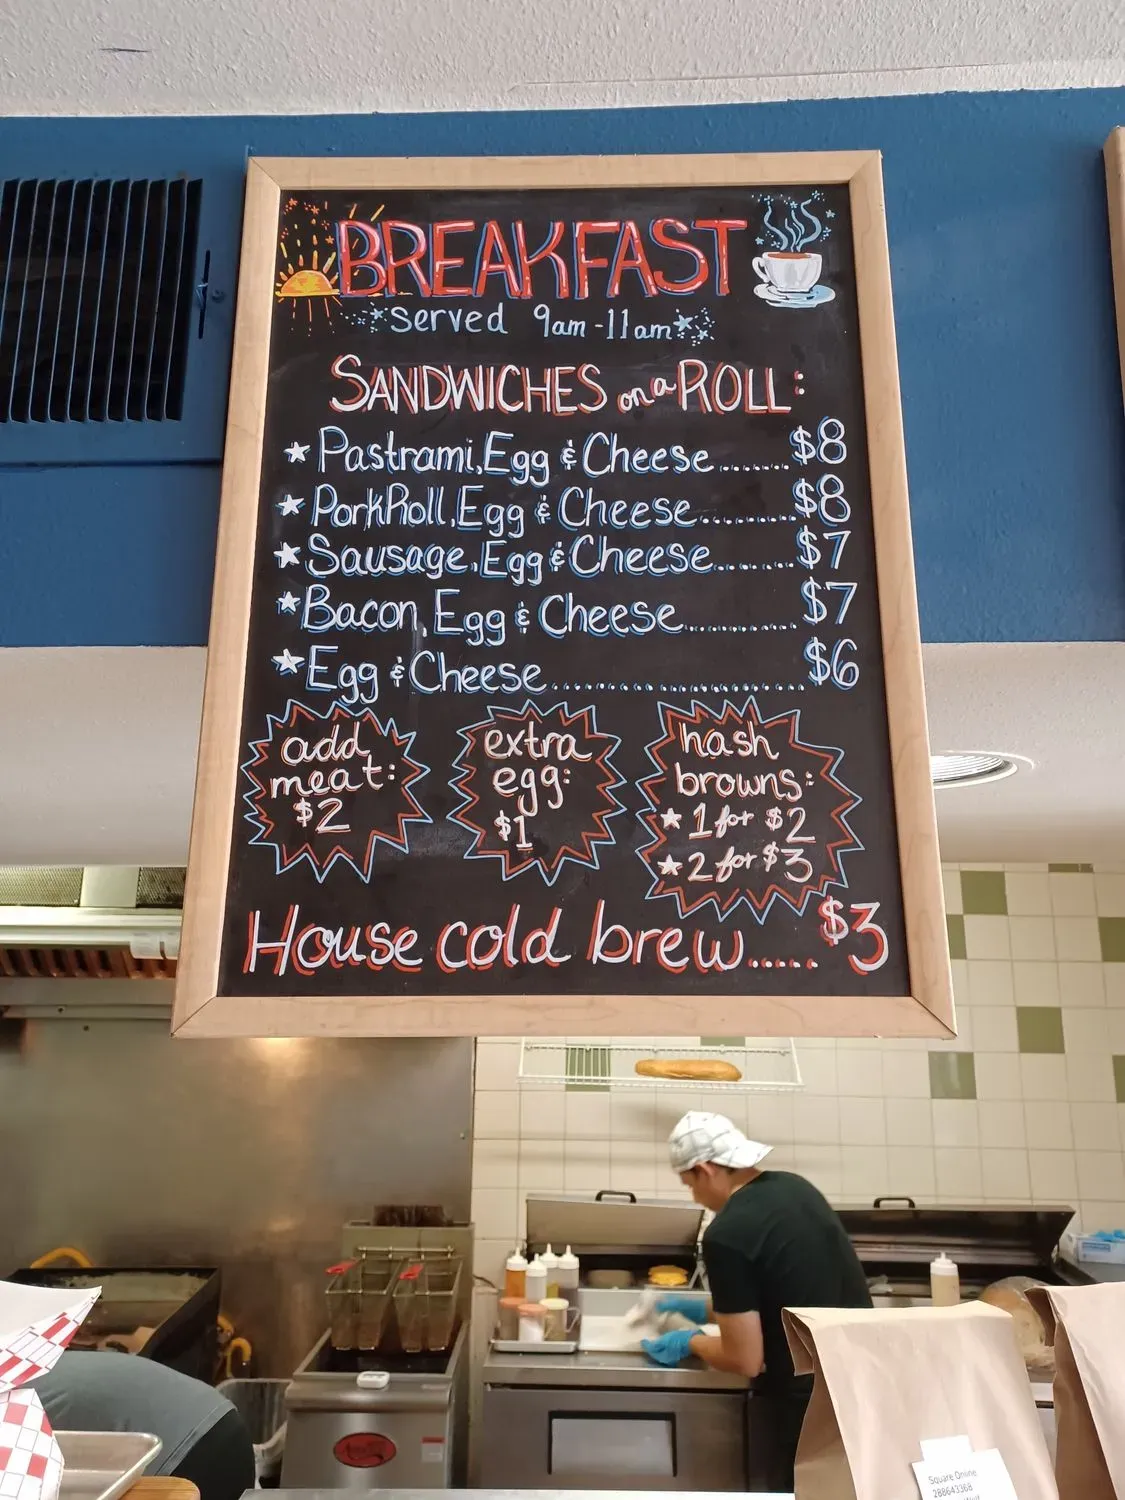 BREAKFAST
served 9am-11am
SANDWICHES on a ROLL:
Pastrami, Egg & Cheese.......$8
PorkRoll, Egg & Cheese.........$8
Sausage, Egg & Cheese........$7
Bacon, Egg & Cheese...........$7
Egg & Cheese.........................$6
add
meat:
$2
extra
egg:
$1
hash
browns:
1 for $2
2 for $3
House cold brew...... $3
Square Online
288643368